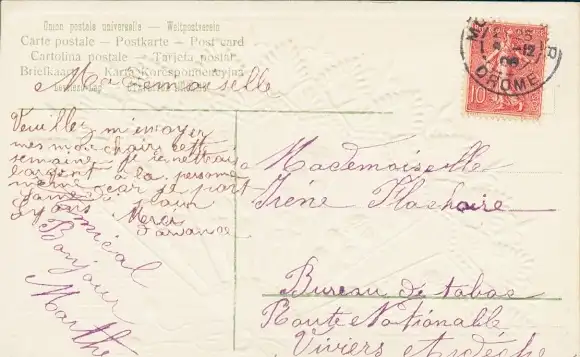 Union postale universelle — Weltpostverein
Carte postale — Postkarte — Post card
Cartolina postale — Tarjeta postal
Briefkaart — Karta korespondencyjna
Mademoiselle
Veuillez m'envoyer
mes mouchoirs cette
semaine je remettrai
l'argent à la personne
même car je part
samedi
Merci
d'avance
amical
Bonjour
Marthe
Mademoiselle
Irène Flachaire
Bureau de tabac
Route Nationable
Viviers Ardèche
10
DROME